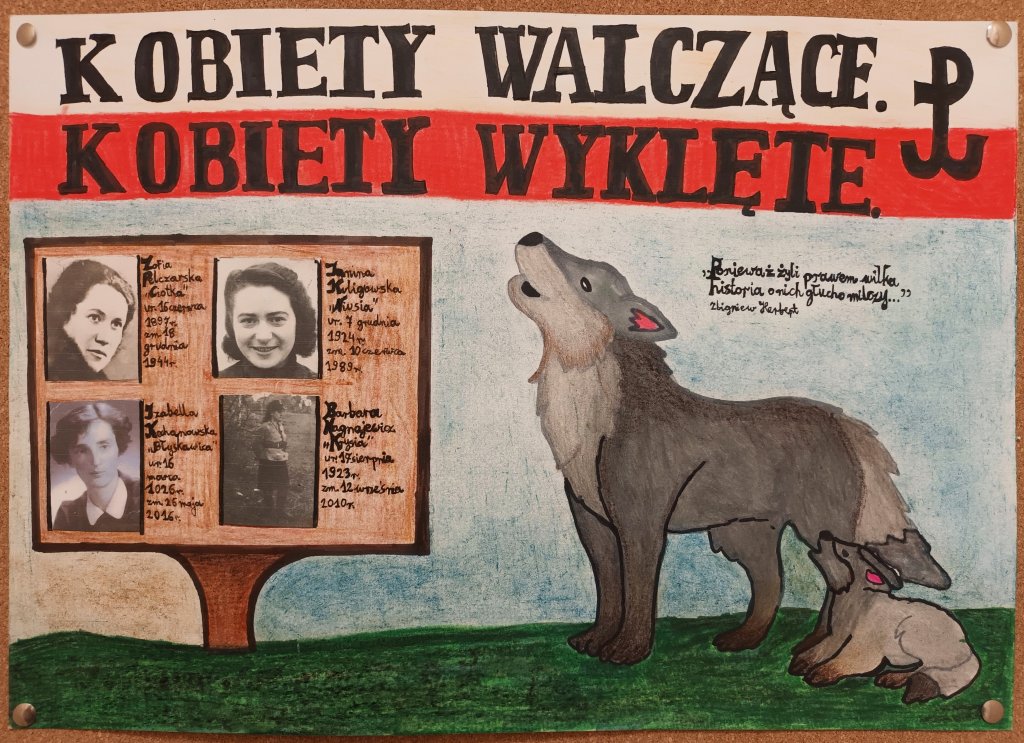 KOBIETY WALCZĄCE.
KOBIETY WYKLĘTE.
Zofia
Pelczarska
"Ciotka"
ur. 16 czerwca
1897r.
zm. 18
grudnia
1944r.
Janina
Kuligowska
"Niusia"
ur. 7 grudnia
1924r.
zm. 10 czerwca
1989r.
Izabella
Kochanowska
"Błyskawica"
ur. 16
marca
1026r.
zm. 26 maja
2016r.
Barbara
Nagnajewicz
"Krysia"
ur. 17 sierpnia
1923r.
zm. 12 września
2010r.
„Ponieważ żyli prawem wilka
historia o nich głucho milczy..."
Zbigniew Herbert